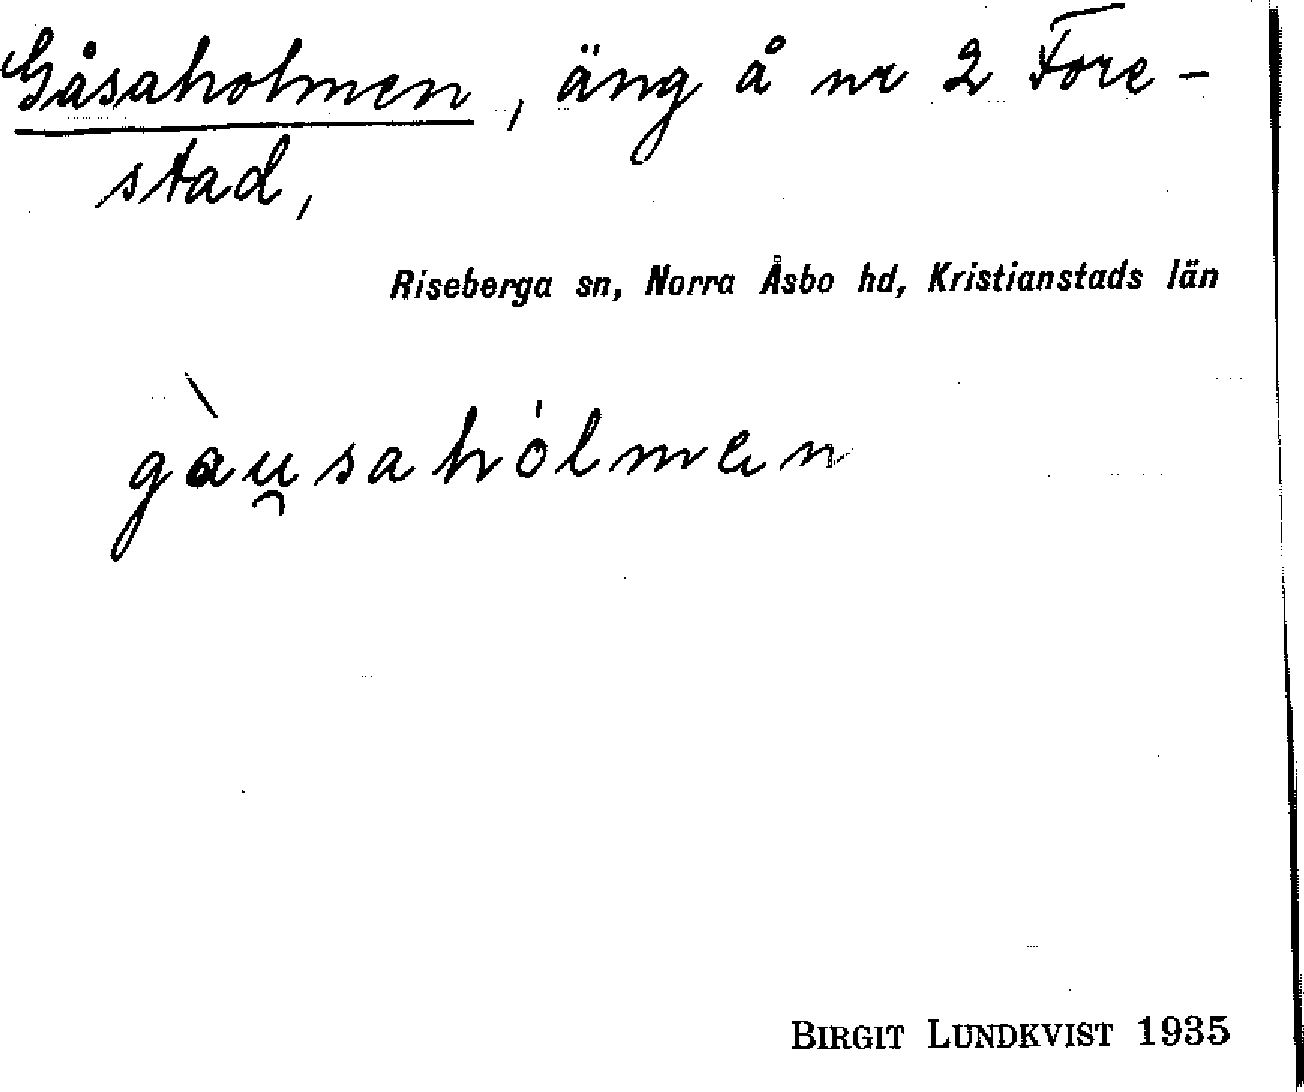 Gåsaholmen, äng å nr 2 Fore-
stad,
Riseberga sn, Norra Åsbo hd, Kristianstads län
gàu̯sahólmen
BIRGIT LUNDKVIST 1935